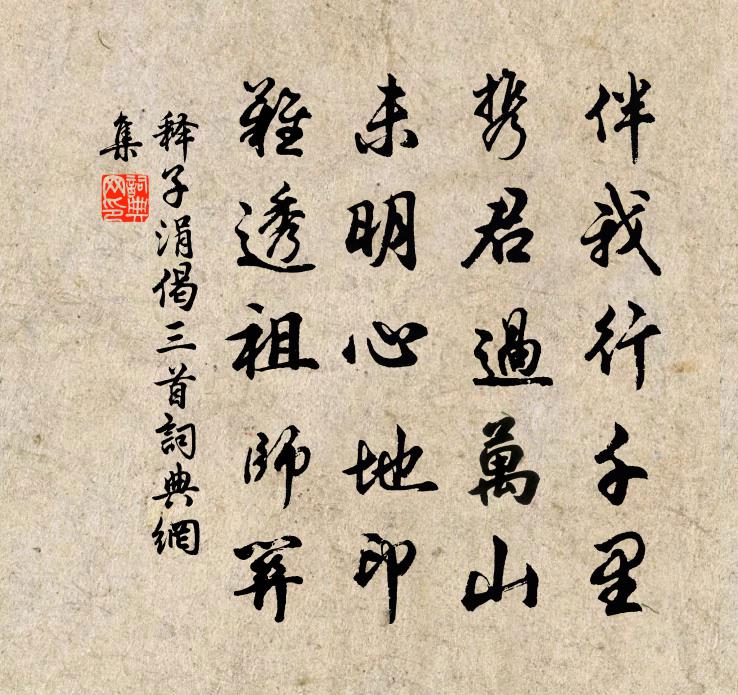 伴我行千里
携君過萬山
未明心地印
難透祖師關
释子涓偈三首詞典網
集
詞典网印